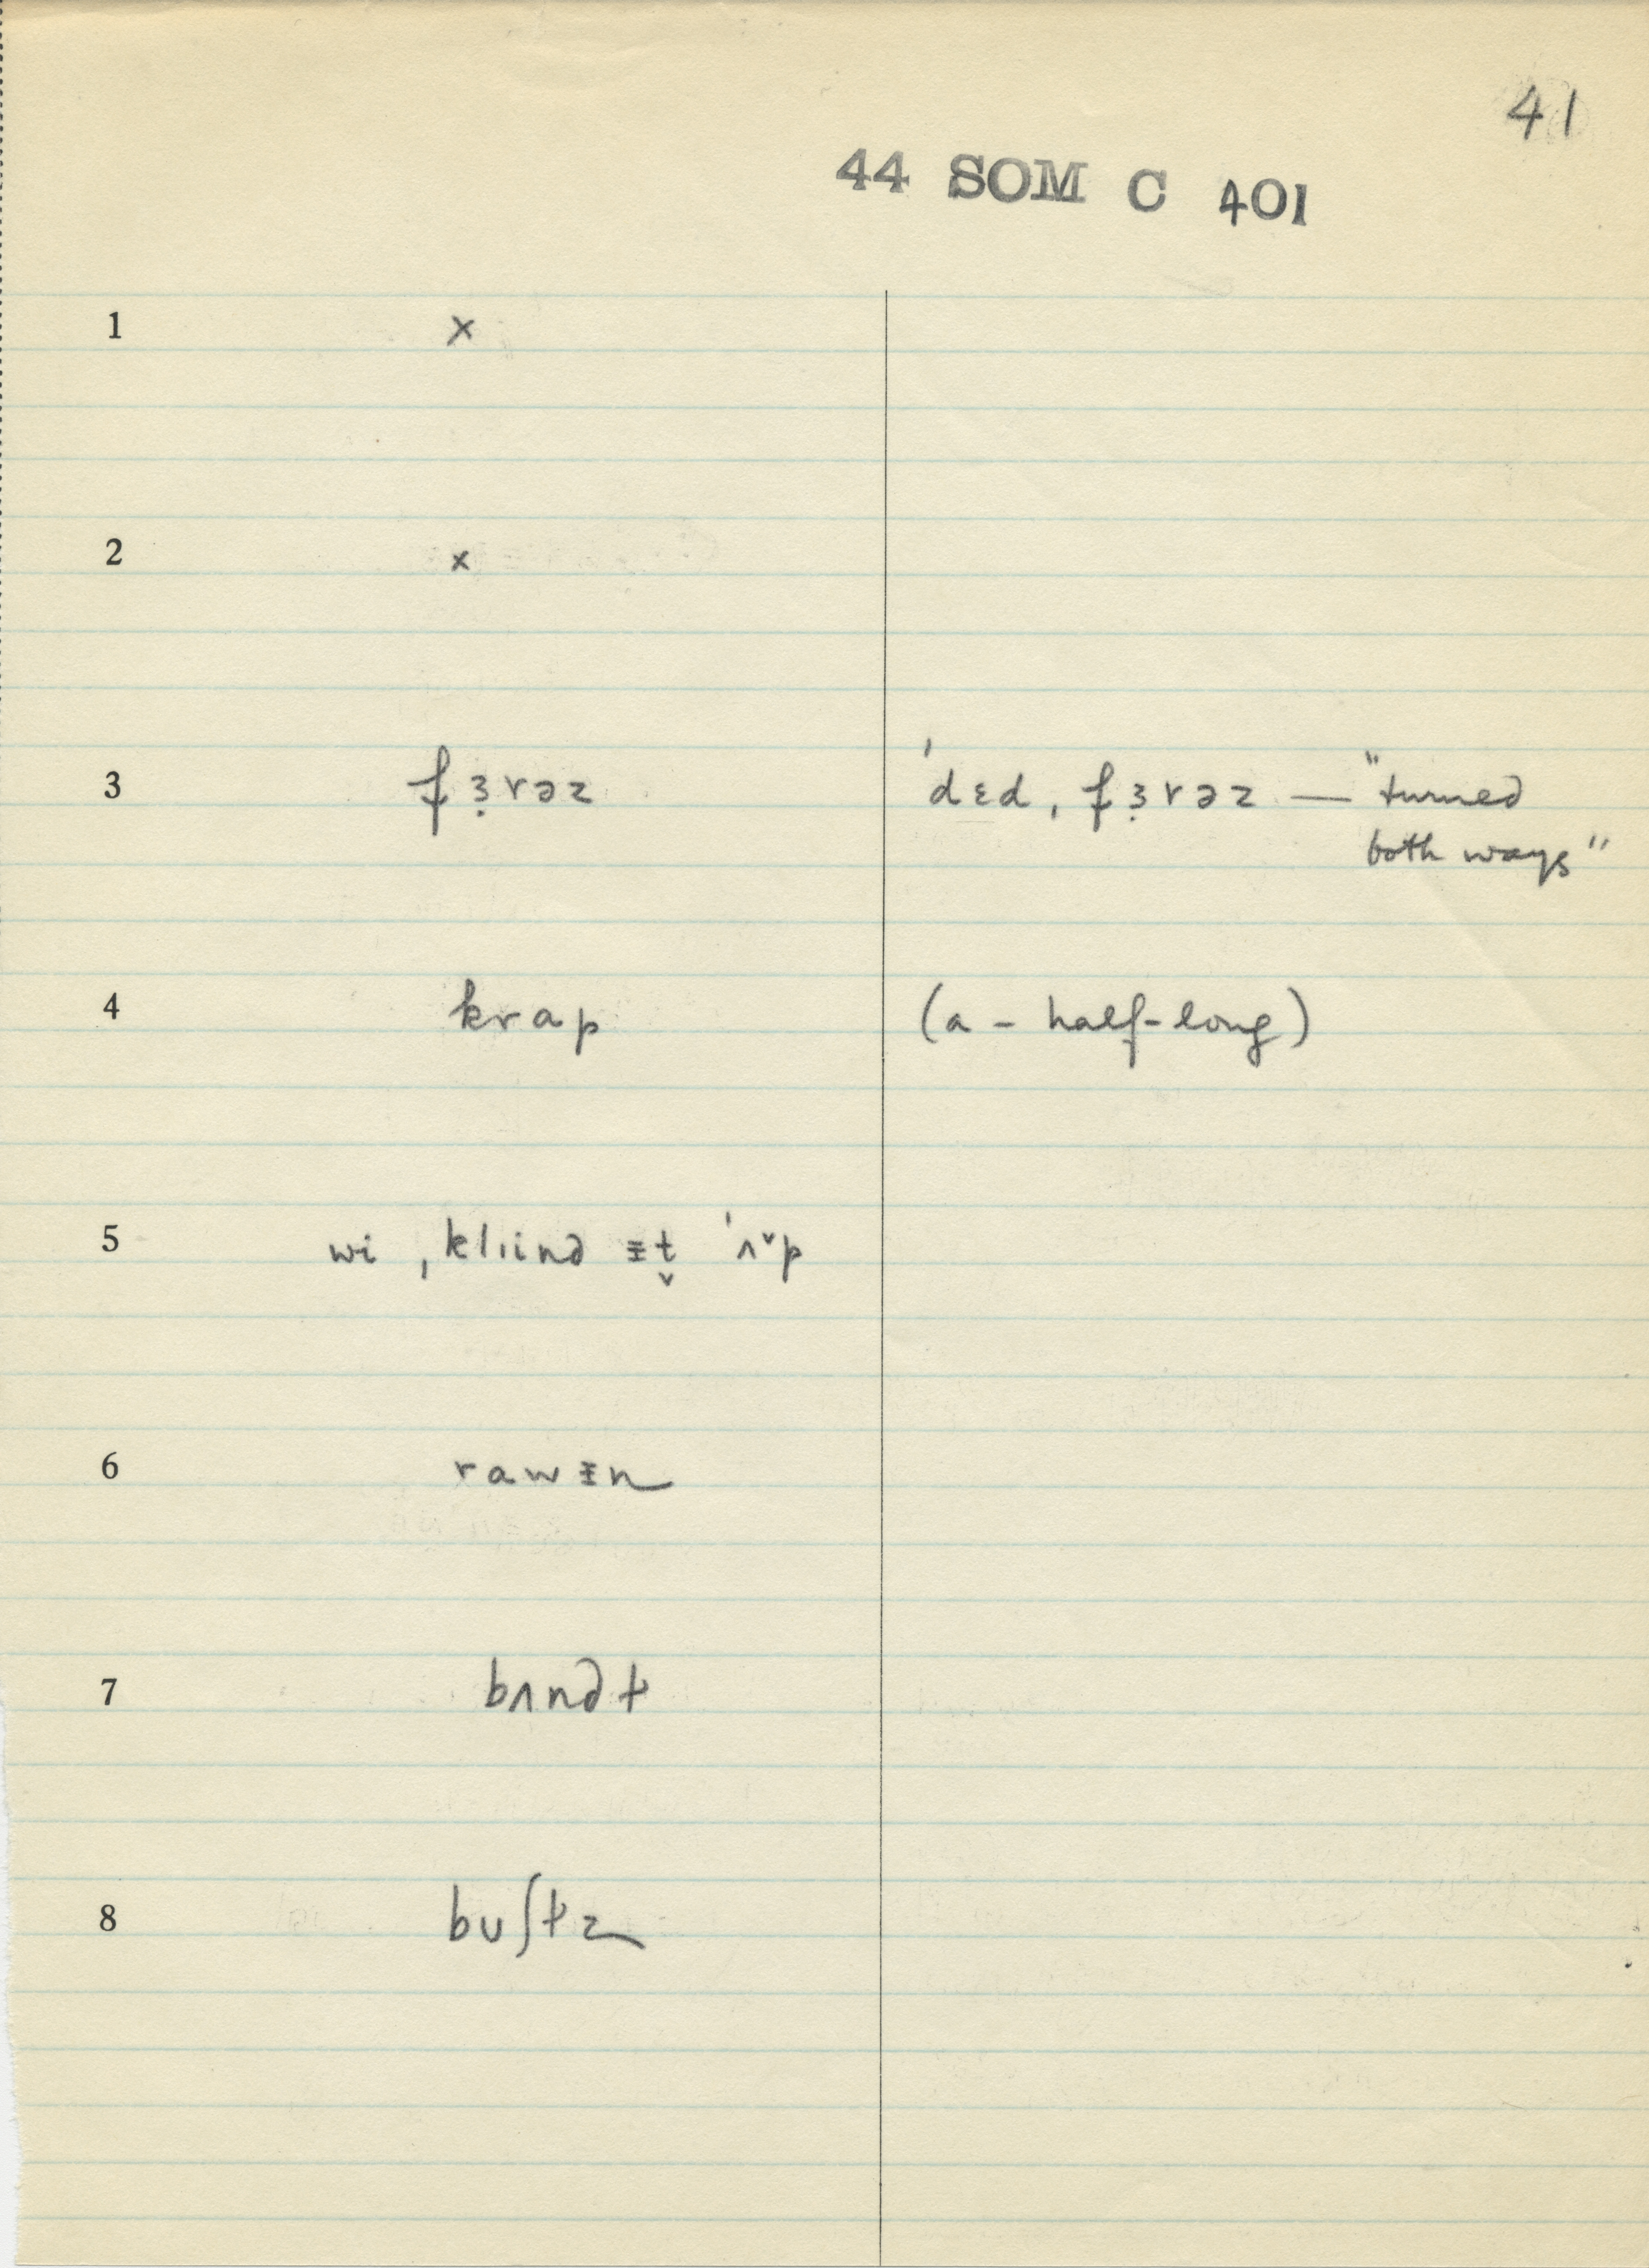 41
44 SOM C 401
1 x
2 x
3 fɜ̣rəz ˈdɛd ˌfɜ̣rəz — "turned
both ways"
4 krap (a - half-long)
5 wi ˌklɪind ɪ̵t̬ ˈʌˇp
6 rawɪ̵n
7 bʌndɫ
8 buʃɫz